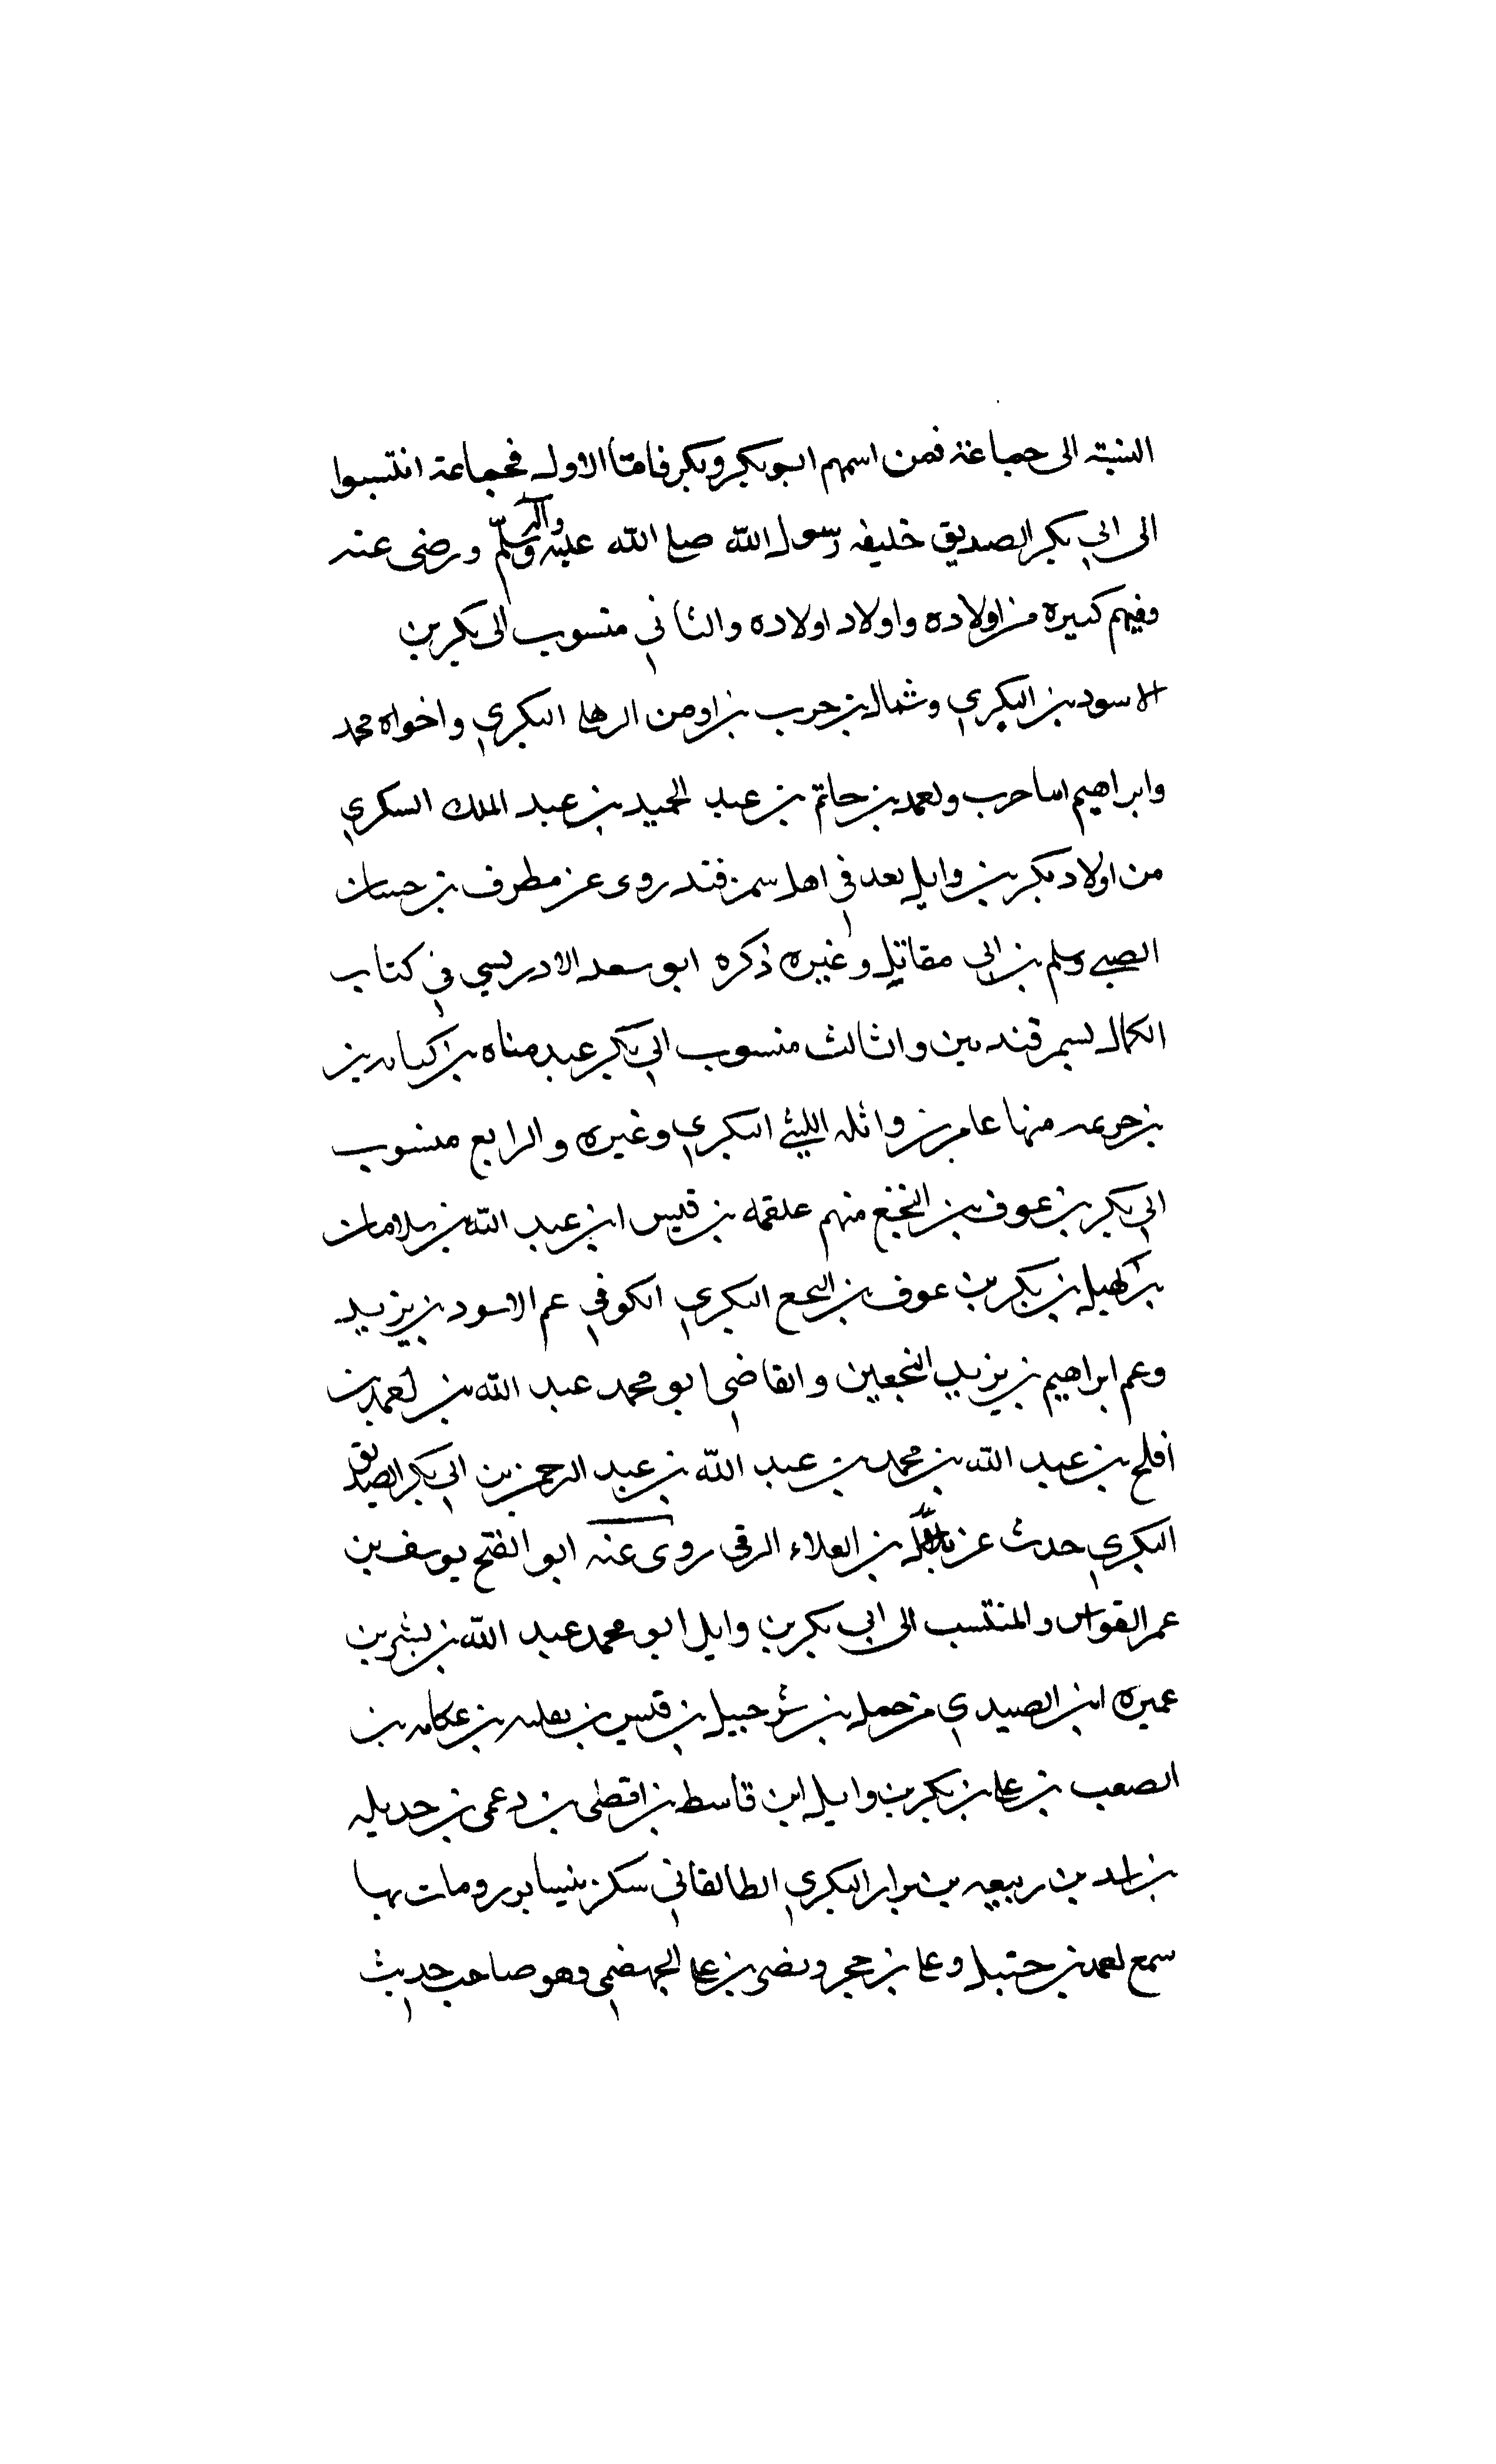 النسبة الى جماعة فمن اسمهم ابوبكر وبكر فاما الاول فجماعة انتسبوا
الى ابي بكر الصديق خليفه رسول الله صلى الله عليه وآله وسلم ورضى عنه
وفيهم كثيرة من اولاده واولاد اولاده والثاني منسوب الى بكر بن
الاسود بن البكري وشمال بن حرب بن اوس الرها البكري واخواه محمد
وابراهيم ابنا حرب واحمد بن حاتم بن عبد الحميد بن عبد الملك السكري
من اولاد بكر بن وايل يعد في اهل سمرقند روى عن مطرف بن حسان
الضبي وسلم بن ابى مقاتل وغيره ذكره ابو سعد الادريسي في كتاب
الكمال لسمرقنديين والثالث منسوب الى بكر عبد مناه بن كنانه بن
بن خزيمه منها عامر بن واثله الليثي البكري وغيره والرابع منسوب
الى بكر بن عوف بن النخع منهم علقمه بن قيس ابن عبد الله بن سلامان
بن كهيل بن بكر بن عوف بن النخع البكري الكوفي عم الاسود بن يزيد
وعم ابراهيم بن يزيد النخعيين والقاضي ابو محمد عبد الله بن احمد بن
افلح بن عبد الله بن محمد بن عبد الله بن عبد الرحمن بن ابي بكر الصديق
البكري حدث عن هلال بن العلاء الرقى روى عنه ابو الفتح يوسف بن
عمر القواس والمنتسب الى ابى بكر بن وايل ابو محمد عبد الله بن بشر بن
عميره ابن الصيدي من حمل بن شرحبيل بن قيس بن ثعلبه بن عكابه بن
الصعب بن على بن بكر بن وايل ابن قاسط بن اقصى بن دعمى بن جديله
بن اسد بن ربيعه بن نزار البكري الطالقاني سكن نيسابور ومات بها
سمع احمد بن حنبل وعلى بن حجر ونصر بن على الجهضمي وهو صاحب حديث